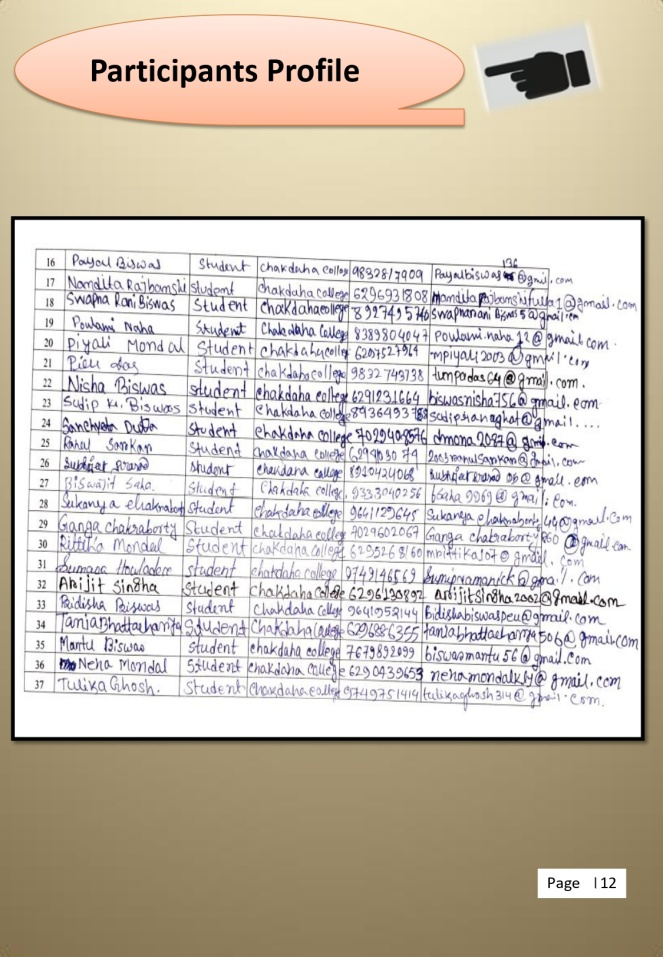 Participants Profile
136
16 Payal Biswas Student chakdaha college 9832817909 Payalbiswas @gmail.com
17 Nandita Rajbamshi student chakdaha college 6296931808 @gmail.com
18 Swapna Rani Biswas Student chakdaha college 8927495740
19 Poulami Naha Student Chakdaha College 8389804047 Poulami.naha12@gmail.com
20 Piyali Mondal Student chakdaha college 6297527964 mpiyali2003@gmail.com
21 Student chakdaha college 9832743738 tumpadas64@gmail.com.
22 Nisha Biswas student chakdaha college 6291231664 biswasnisha756@gmail.com
23 Sudip Ku. Biswas student chakdaha college @gmail....
24 Sanchyeta Dutta student chakdaha college
25 Rahul Sarkar Student chakdaha college
26 student chakdaha college 8910424068
27 Biswajit Saha. Student Chakdaha college. 9333040256 bsaha9969@gmail.com.
28 Sukanya chakraborty Student chakdaha college 9641129645
29 Ganga chakraborty Student chakdaha college 7029602067 Ganga chakraborty860@gmail.com
30 Mondal Student chakdaha college
31 Sumana Howladar student chakdaha college 9749146569 Sumipramanick@gmail.com
32 Arijit Singha Student chakdaha college 6296190892 arijitsingha2002@gmail.com
33 Bidisha Biswas Student Chakdaha college 9641952144 Bidishabiswaspeu@gmail.com
34 Student Chakdaha College 6296886355
35 Mantu Biswas student chakdaha college 7679892099 biswasmantu56@gmail.com
36 Neha Mondal Student chakdaha College 6290439653 @gmail.com
37 Tulika Ghosh. Student Chakdaha college 9749751414 tulikaghosh314@gmail.com.
Page |12